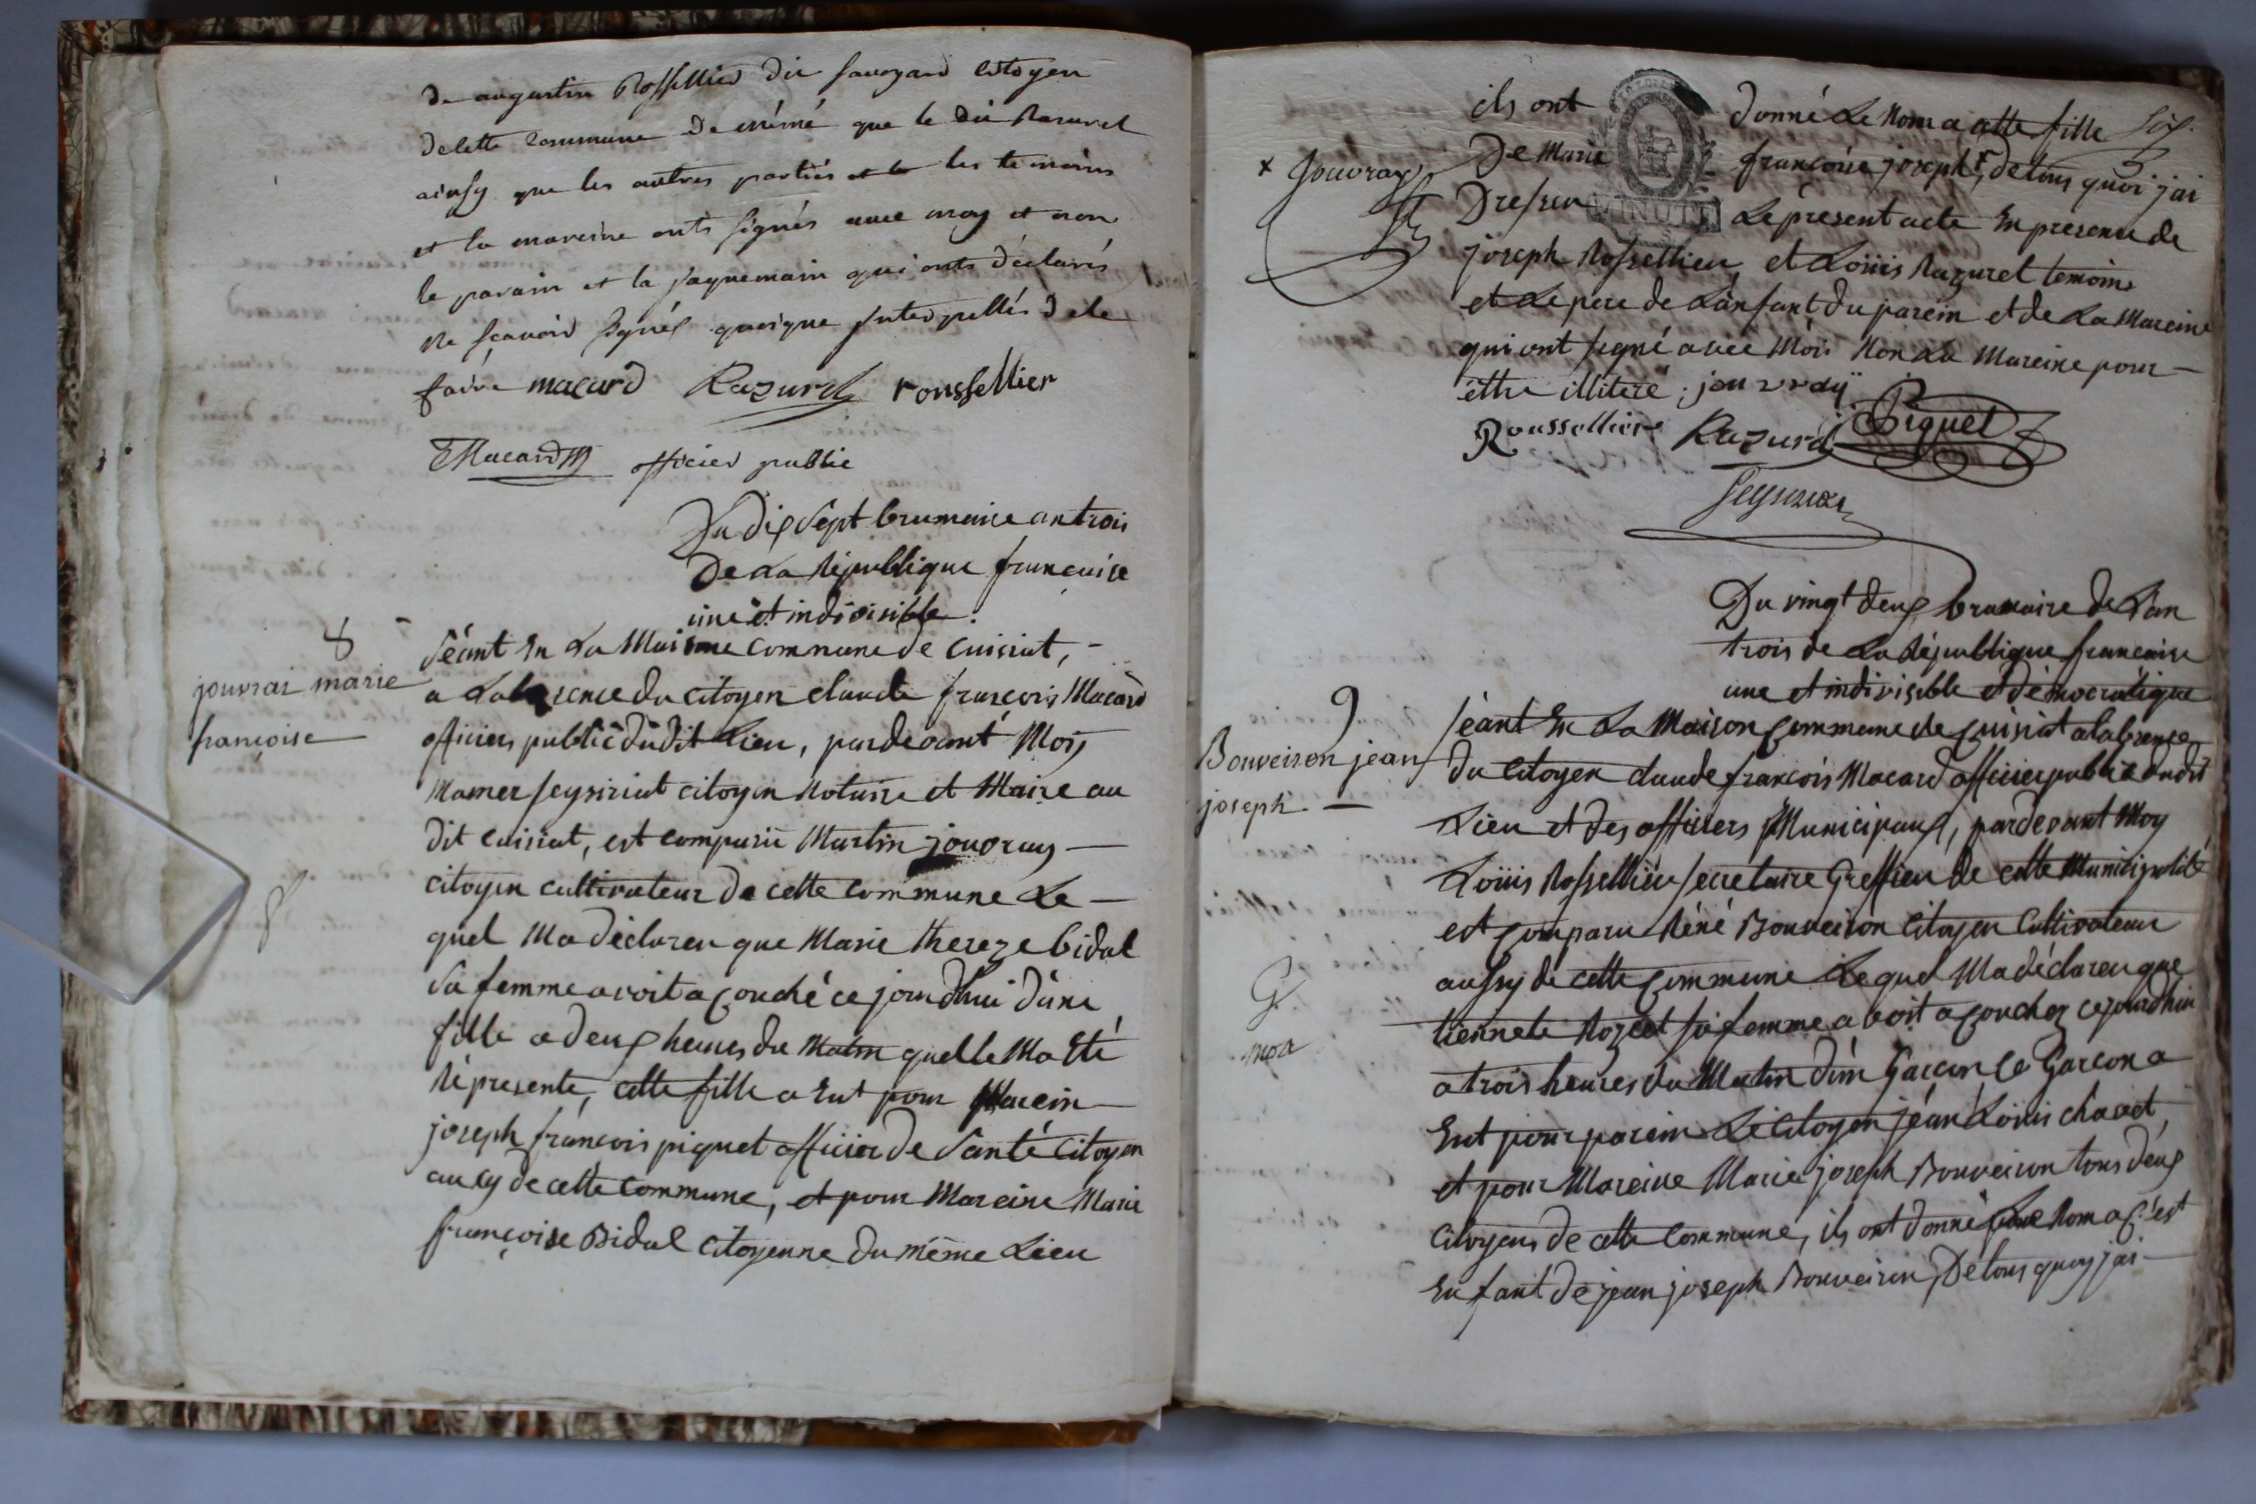 de augustin Rossellier dit savoyard citoyen
de cette commune De mémé que le dit Razurel
ainsy que les autres parties et les temoins
et la mareine onts signés avec moy et non
le parain et la jaquemain qui onts déclarés
ne sçavoir signés quoique jnterpellés de le
faire macard Razurel roussellier
Macard officier public
Du dix sept brumaire an trois
De La République francaise
une et indivisible.
8
jouvrai marie
françoise
Séant En La Maisone commune de Cuisiat,
a Labsence du citoyen claude francois Macard
officier public dudit Lieu, pardevant Mois
Mamer seysiriat citoyen Notaire et Maire au
dit cuisiat, est comparu Martin jouvray
citoyen cultivateur de cette commune Le
quel Ma déclareu que Marie thereze bidal
sa femme avoit acouché ce jourdhui d'une
fille a deux heures du Matin quelle Ma Eté
répresente, cette fille a Eut pour Parein
joseph francois piquet officier de Santé citoyen
aucy de cette commune, et pour Mareine Marie
françoise Bidal citoyenne du même Lieu
six.
ils ont donné Le Nom a cette fille
x jouvray
De Marie francoise joseph x, de tous quoi jai
Dresseu Le present acte En presence de
MINUTE
joseph Rossellieu et Loüis Razurel temoins
et Le pere de Lanfant du parein et de La Mareine
qui ont signé avec Mois Non La Mareine pour
éttre illiteré ; jouvraÿ
Roussellier Razurel Piquet
Du vingt deux brumaire de L'an
trois de La République francaise
une et indivisible et démocratique
9
Bouveiron jean
joseph
Séant En La Maison commune de Cuisiat a labsence
du Citoyen claude francois Macard officier public dudit
Lieu et des officiers Municipaux, pardevant Moy
Loüis Rossellieu secrétaire Greffieu de cette Municipalité
est comparu Réné Bouveiron Citoyen Cultivateur
aussy de cette Commune Le quel Ma déclareu que
tiennete Rozet sa femme avoit acoucher cejourdhui
a trois heures du Matin d'un Garcon Ce Garcon a
Eut pour parein Le Citoyen jéan Loüis chavet,
et pour Mareine Marie joseph Bouveiron tous deux
Citoyens de cette Commune, ils ont donné pour Nom a c'est
Enfant de jean joseph Bouveiron, De tous quoy jai
mor